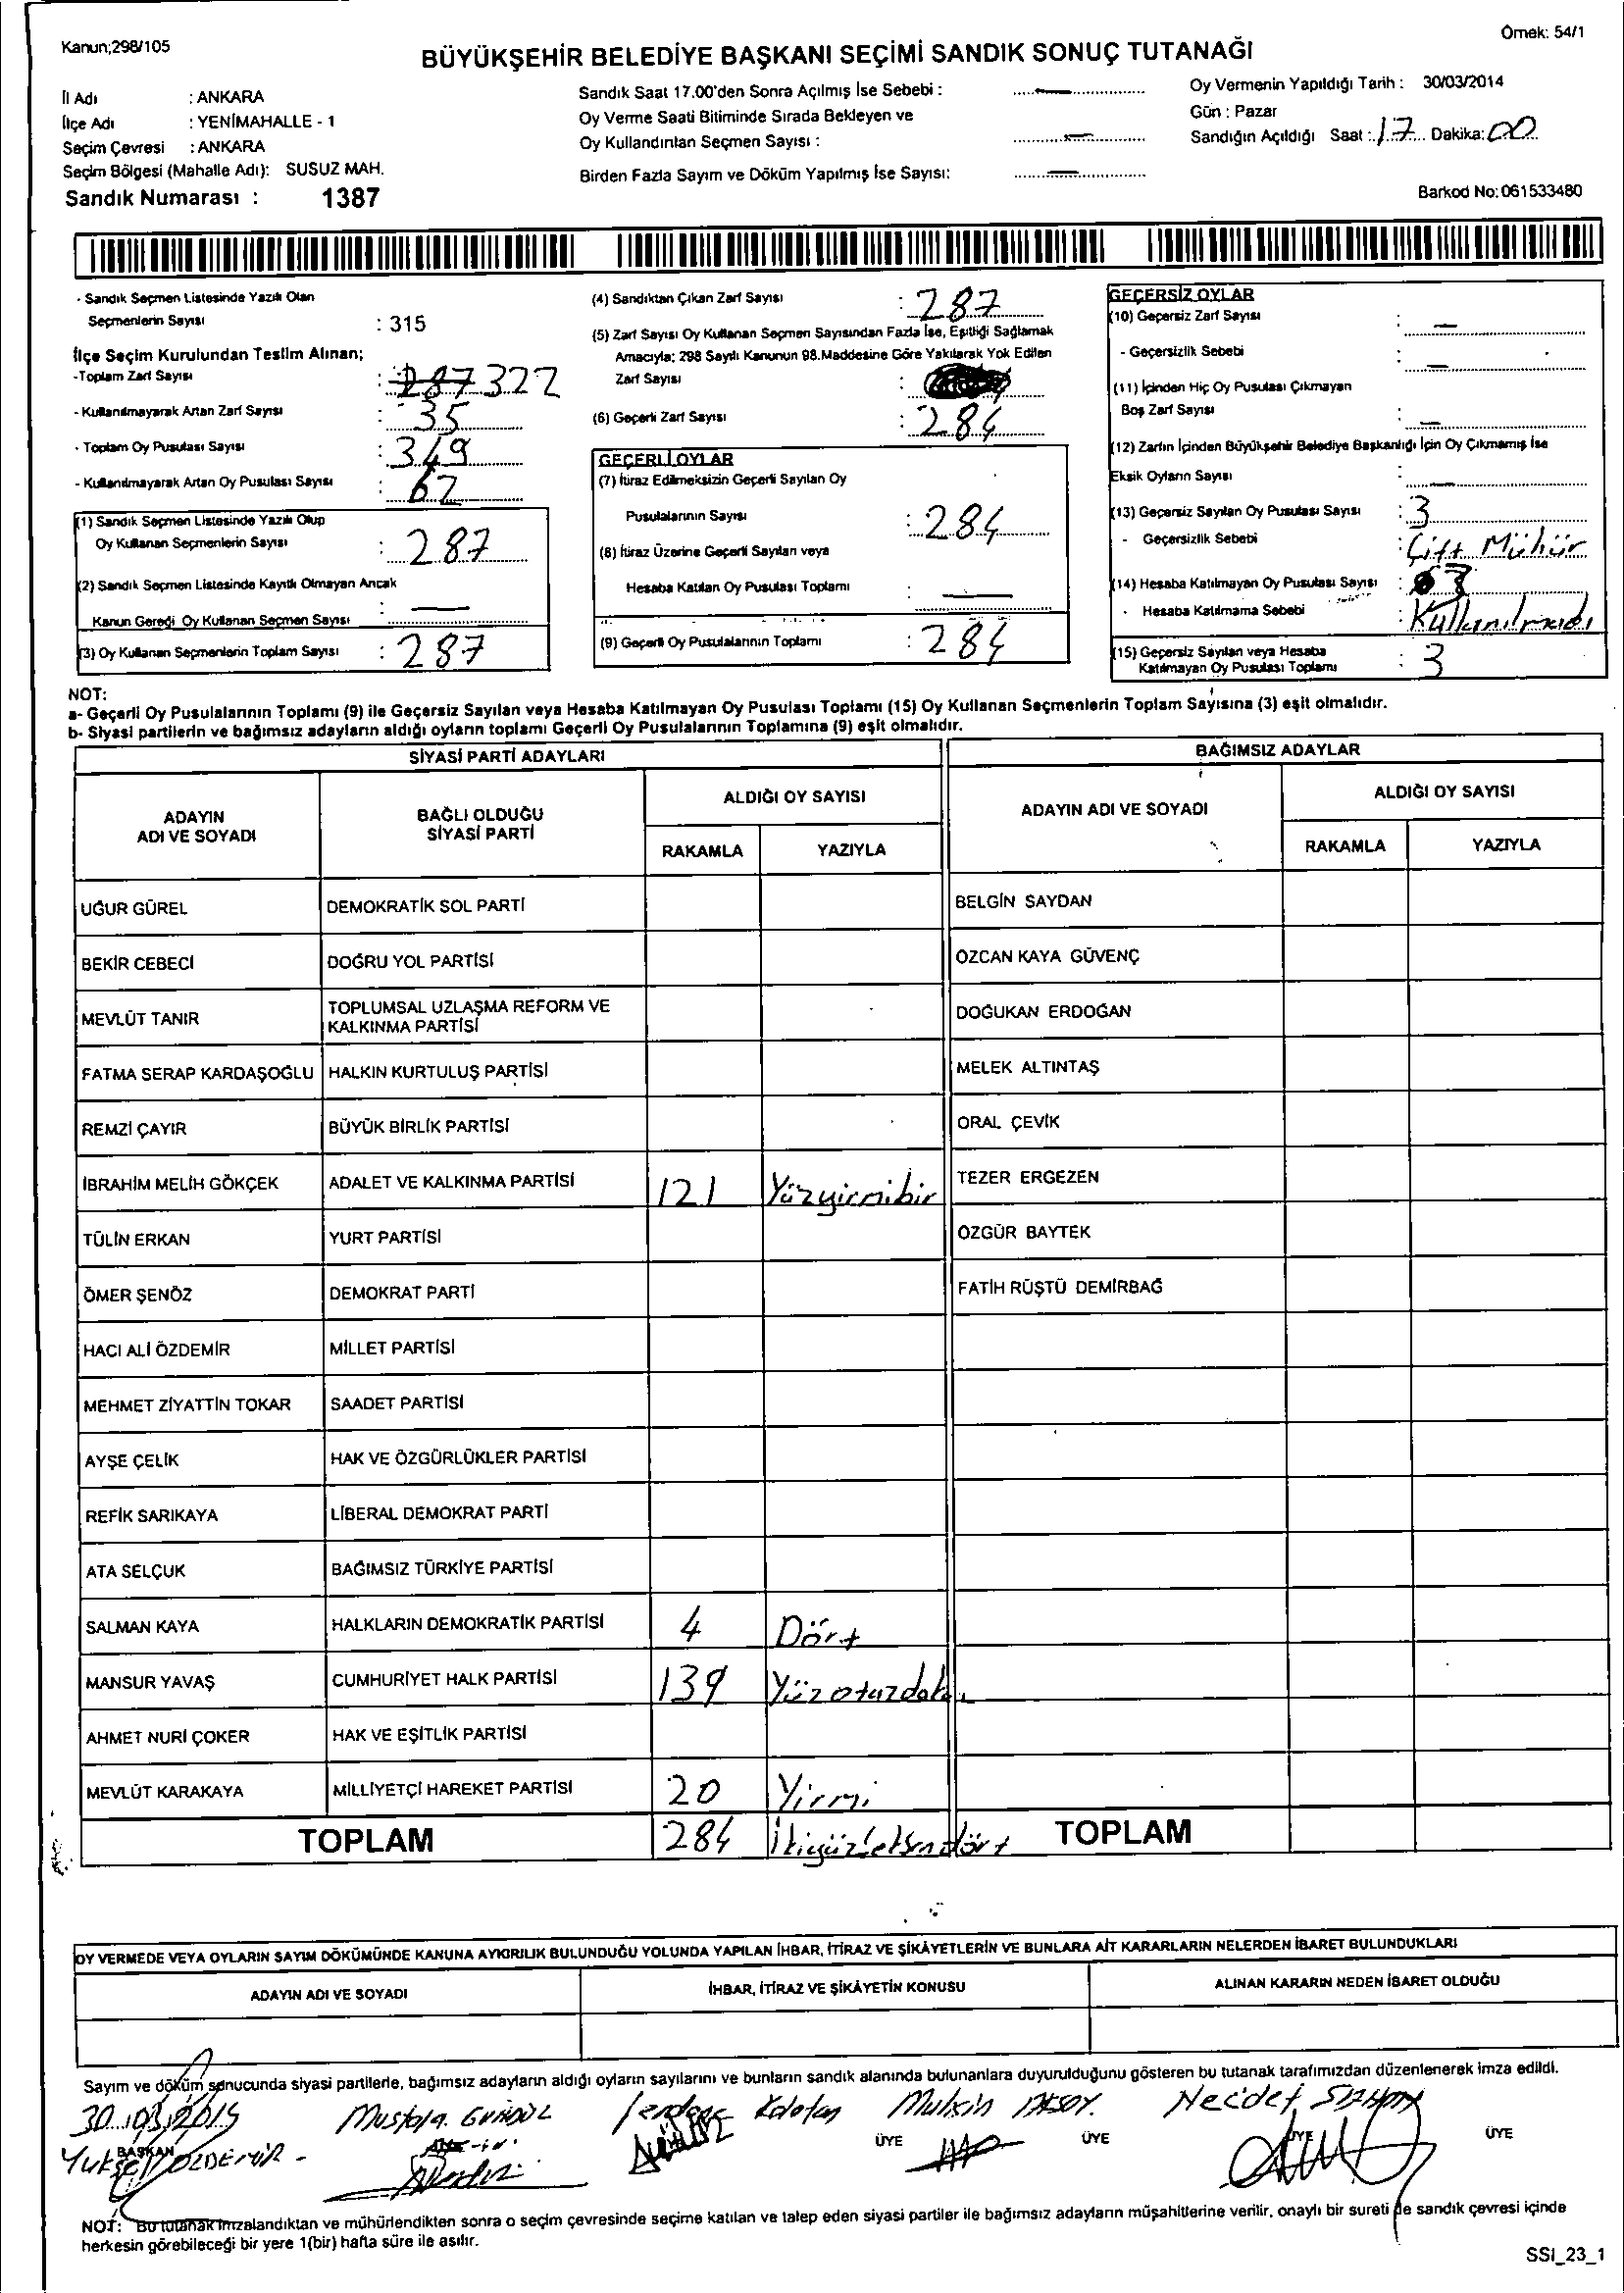 Kanun;298/105
Örnek: 54/1
BÜYÜKŞEHİR BELEDİYE BAŞKANI SEÇİMİ SANDIK SONUÇ TUTANAĞI
İl Adı : ANKARA
İlçe Adı : YENİMAHALLE - 1
Seçim Çevresi : ANKARA
Seçim Bölgesi (Mahalle Adı): SUSUZ MAH.
Sandık Numarası : 1387
Sandık Saat 17.00'den Sonra Açılmış İse Sebebi : —
Oy Verme Saati Bitiminde Sırada Bekleyen ve
Oy Kullandırılan Seçmen Sayısı : —
Birden Fazla Sayım ve Döküm Yapılmış İse Sayısı: —
Oy Vermenin Yapıldığı Tarih : 30/03/2014
Gün : Pazar
Sandığın Açıldığı Saat : 17 Dakika: 00
Barkod No: 061533480
- Sandık Seçmen Listesinde Yazılı Olan
Seçmenlerin Sayısı : 315
İlçe Seçim Kurulundan Teslim Alınan;
-Toplam Zarf Sayısı : 287 322
- Kullanılmayarak Artan Zarf Sayısı : 35
- Toplam Oy Pusulası Sayısı : 349
- Kullanılmayarak Artan Oy Pusulası Sayısı : 62
(1) Sandık Seçmen Listesinde Yazılı Olup
Oy Kullanan Seçmenlerin Sayısı : 287
(2) Sandık Seçmen Listesinde Kayıtlı Olmayan Ancak
Kanun Gereği Oy Kullanan Seçmen Sayısı : —
(3) Oy Kullanan Seçmenlerin Toplam Sayısı : 287
(4) Sandıktan Çıkan Zarf Sayısı : 287
(5) Zarf Sayısı Oy Kullanan Seçmen Sayısından Fazla İse, Eşitliği Sağlamak
Amacıyla; 298 Sayılı Kanunun 98.Maddesine Göre Yakılarak Yok Edilen
Zarf Sayısı :
(6) Geçerli Zarf Sayısı : 284
GEÇERLİ OYLAR
(7) İtiraz Edilmeksizin Geçerli Sayılan Oy
Pusulalarının Sayısı : 284
(8) İtiraz Üzerine Geçerli Sayılan veya
Hesaba Katılan Oy Pusulası Toplamı : —
(9) Geçerli Oy Pusulalarının Toplamı : 284
GEÇERSİZ OYLAR
(10) Geçersiz Zarf Sayısı : —
- Geçersizlik Sebebi : —
(11) İçinden Hiç Oy Pusulası Çıkmayan
Boş Zarf Sayısı : —
(12) Zarfın İçinden Büyükşehir Belediye Başkanlığı İçin Oy Çıkmamış İse
Eksik Oyların Sayısı : —
(13) Geçersiz Sayılan Oy Pusulası Sayısı : 3
- Geçersizlik Sebebi : Çift Mühür
(14) Hesaba Katılmayan Oy Pusulası Sayısı : 3
- Hesaba Katılmama Sebebi : Kullanılmadı
(15) Geçersiz Sayılan veya Hesaba
Katılmayan Oy Pusulası Toplamı : 3
NOT:
a- Geçerli Oy Pusulalarının Toplamı (9) ile Geçersiz Sayılan veya Hesaba Katılmayan Oy Pusulası Toplamı (15) Oy Kullanan Seçmenlerin Toplam Sayısına (3) eşit olmalıdır.
b- Siyasi partilerin ve bağımsız adayların aldığı oyların toplamı Geçerli Oy Pusulalarının Toplamına (9) eşit olmalıdır.
SİYASİ PARTİ ADAYLARI
BAĞIMSIZ ADAYLAR
ADAYIN
ADI VE SOYADI
BAĞLI OLDUĞU
SİYASİ PARTİ
ALDIĞI OY SAYISI
RAKAMLA YAZIYLA
ADAYIN ADI VE SOYADI
ALDIĞI OY SAYISI
RAKAMLA YAZIYLA
UĞUR GÜREL DEMOKRATİK SOL PARTİ BELGİN SAYDAN
BEKİR CEBECİ DOĞRU YOL PARTİSİ ÖZCAN KAYA GÜVENÇ
MEVLÜT TANIR TOPLUMSAL UZLAŞMA REFORM VE
KALKINMA PARTİSİ DOĞUKAN ERDOĞAN
FATMA SERAP KARDAŞOĞLU HALKIN KURTULUŞ PARTİSİ MELEK ALTINTAŞ
REMZİ ÇAYIR BÜYÜK BİRLİK PARTİSİ ORAL ÇEVİK
İBRAHİM MELİH GÖKÇEK ADALET VE KALKINMA PARTİSİ 121 Yüzyirmibir TEZER ERGEZEN
TÜLİN ERKAN YURT PARTİSİ ÖZGÜR BAYTEK
ÖMER ŞENÖZ DEMOKRAT PARTİ FATİH RÜŞTÜ DEMİRBAĞ
HACI ALİ ÖZDEMİR MİLLET PARTİSİ
MEHMET ZİYATTİN TOKAR SAADET PARTİSİ
AYŞE ÇELİK HAK VE ÖZGÜRLÜKLER PARTİSİ
REFİK SARIKAYA LİBERAL DEMOKRAT PARTİ
ATA SELÇUK BAĞIMSIZ TÜRKİYE PARTİSİ
SALMAN KAYA HALKLARIN DEMOKRATİK PARTİSİ 4 Dört
MANSUR YAVAŞ CUMHURİYET HALK PARTİSİ 139
AHMET NURİ ÇOKER HAK VE EŞİTLİK PARTİSİ
MEVLÜT KARAKAYA MİLLİYETÇİ HAREKET PARTİSİ 20 Yirmi
TOPLAM 284 TOPLAM
OY VERMEDE VEYA OYLARIN SAYIM DÖKÜMÜNDE KANUNA AYKIRILIK BULUNDUĞU YOLUNDA YAPILAN İHBAR, İTİRAZ VE ŞİKÂYETLERİN VE BUNLARA AİT KARARLARIN NELERDEN İBARET BULUNDUKLARI
ADAYIN ADI VE SOYADI İHBAR, İTİRAZ VE ŞİKÂYETİN KONUSU ALINAN KARARIN NEDEN İBARET OLDUĞU
Sayım ve döküm sonucunda siyasi partilerle, bağımsız adayların aldığı oyların sayılarını ve bunların sandık alanında bulunanlara duyurulduğunu gösteren bu tutanak tarafımızdan düzenlenerek imza edildi.
Mustafa Muhsin Necdet
BAŞKAN ÜYE ÜYE ÜYE ÜYE
NOT: Bu tutanak imzalandıktan ve mühürlendikten sonra o seçim çevresinde seçime katılan ve talep eden siyasi partiler ile bağımsız adayların müşahitlerine verilir, onaylı bir sureti de sandık çevresi içinde
herkesin görebileceği bir yere 1(bir) hafta süre ile asılır.
SSI_23_1